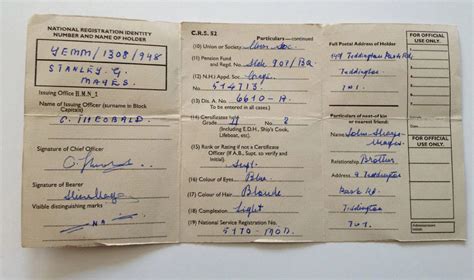 NATIONAL REGISTRATION IDENTITY
NUMBER AND NAME OF HOLDER
YEMM/1308/948
STANLEY. G.
MAYES.
Issuing Office H.M.N_1
Name of Issuing Officer (surname in Block
Capitals)
C. THEOBALD
Signature of Chief Officer
Signature of Bearer
Visible distinguishing marks
NA
C.R.S. 52
Particulars—continued
(10) Union or Society
(11) Pension Fund
and Regd. No. 901/BA
(12) N.H.I. Appd. Soc.
574713
(13) Dis. A. No. 6610-A
(To be entered in all cases)
(14) Certificates held
Grade 11 No 2
(Including E.D.H., Ship's Cook,
Lifeboat, etc.)
(15) Rank or Rating if not a Certificate
Officer (If A.B., Supt. so verify and
initial).
Supt.
(16) Colour of Eyes Blue
(17) Colour of Hair Blonde
(18) Complexion Light
(19) National Service Registration No.
5170-MOD.
Full Postal Address of Holder
149 Teddington Park Rd
Teddington
Particulars of next-of-kin
or nearest friend:
Name:
John
Mayes.
Relationship. Brother
Address. Teddington
Park Rd.
Teddington
FOR OFFICIAL
USE ONLY.
FOR OFFICIAL
USE ONLY.
Administration
Issue